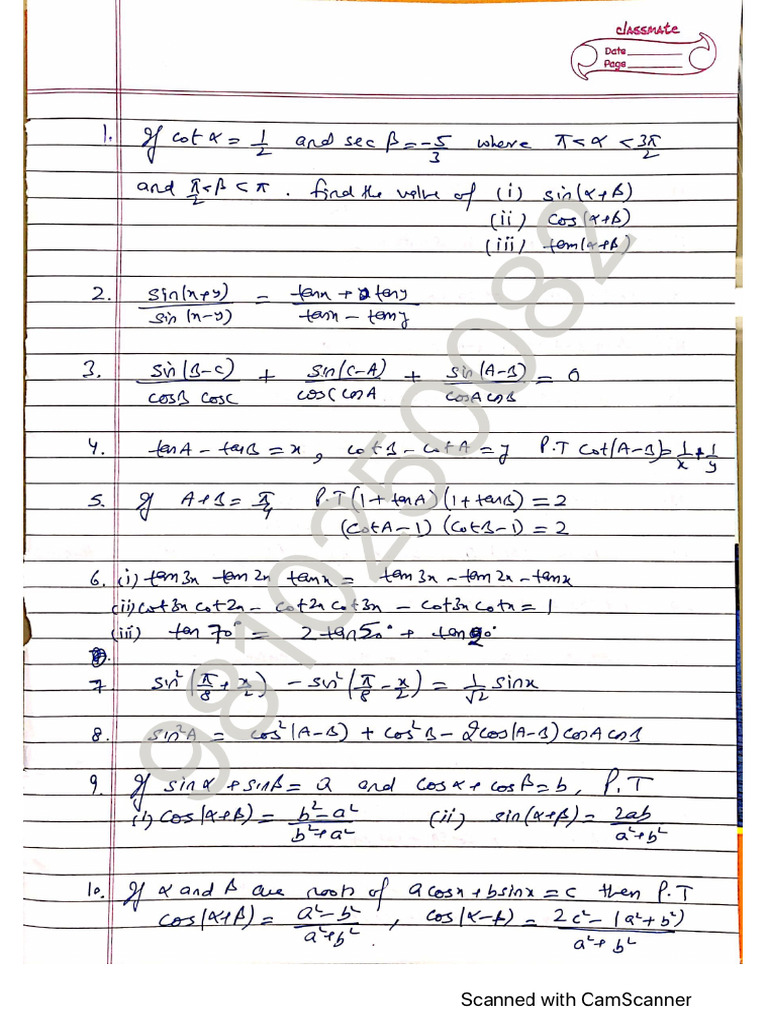 classmate
Date
Page
1. If cot α = 1/2 and sec β = -5/3 where π < α < 3π/2
and π/2 < β < π. find the value of (i) sin(α+β)
(ii) cos(α+β)
(iii) tan(α+β)
2. sin(x+y)/sin(x-y) = tanx + tany/tanx - tany
3. sin(B-C)/cosB cosC + sin(C-A)/cosC cosA + sin(A-B)/cosA cosB = 0
4. tanA - tanB = x, cotB - cotA = y P.T cot(A-B) = 1/x + 1/y
5. If A+B = π/4 P.T (1+tanA)(1+tanB) = 2
(cotA-1)(cotB-1) = 2
6. (i) tan3x tan2x tanx = tan3x - tan2x - tanx
(ii) cot3x cot2x - cot2x cot3x - cot3x cotx = 1
(iii) tan70° = 2tan50° + tan20°
7. sin²(π/8 + x/2) - sin²(π/8 - x/2) = 1/√2 sinx
8. sin²A = cos²(A-B) + cos²B - 2cos(A-B) cosA cosB
9. If sinα + sinβ = a and cosα + cosβ = b, P.T
(i) cos(α+β) = b²-a²/b²+a² (ii) sin(α+β) = 2ab/a²+b²
10. If α and β are roots of acosx + bsinx = c then P.T
cos(α+β) = a²-b²/a²+b², cos(α-β) = 2c²-(a²+b²)/a²+b²
9810250082
Scanned with CamScanner